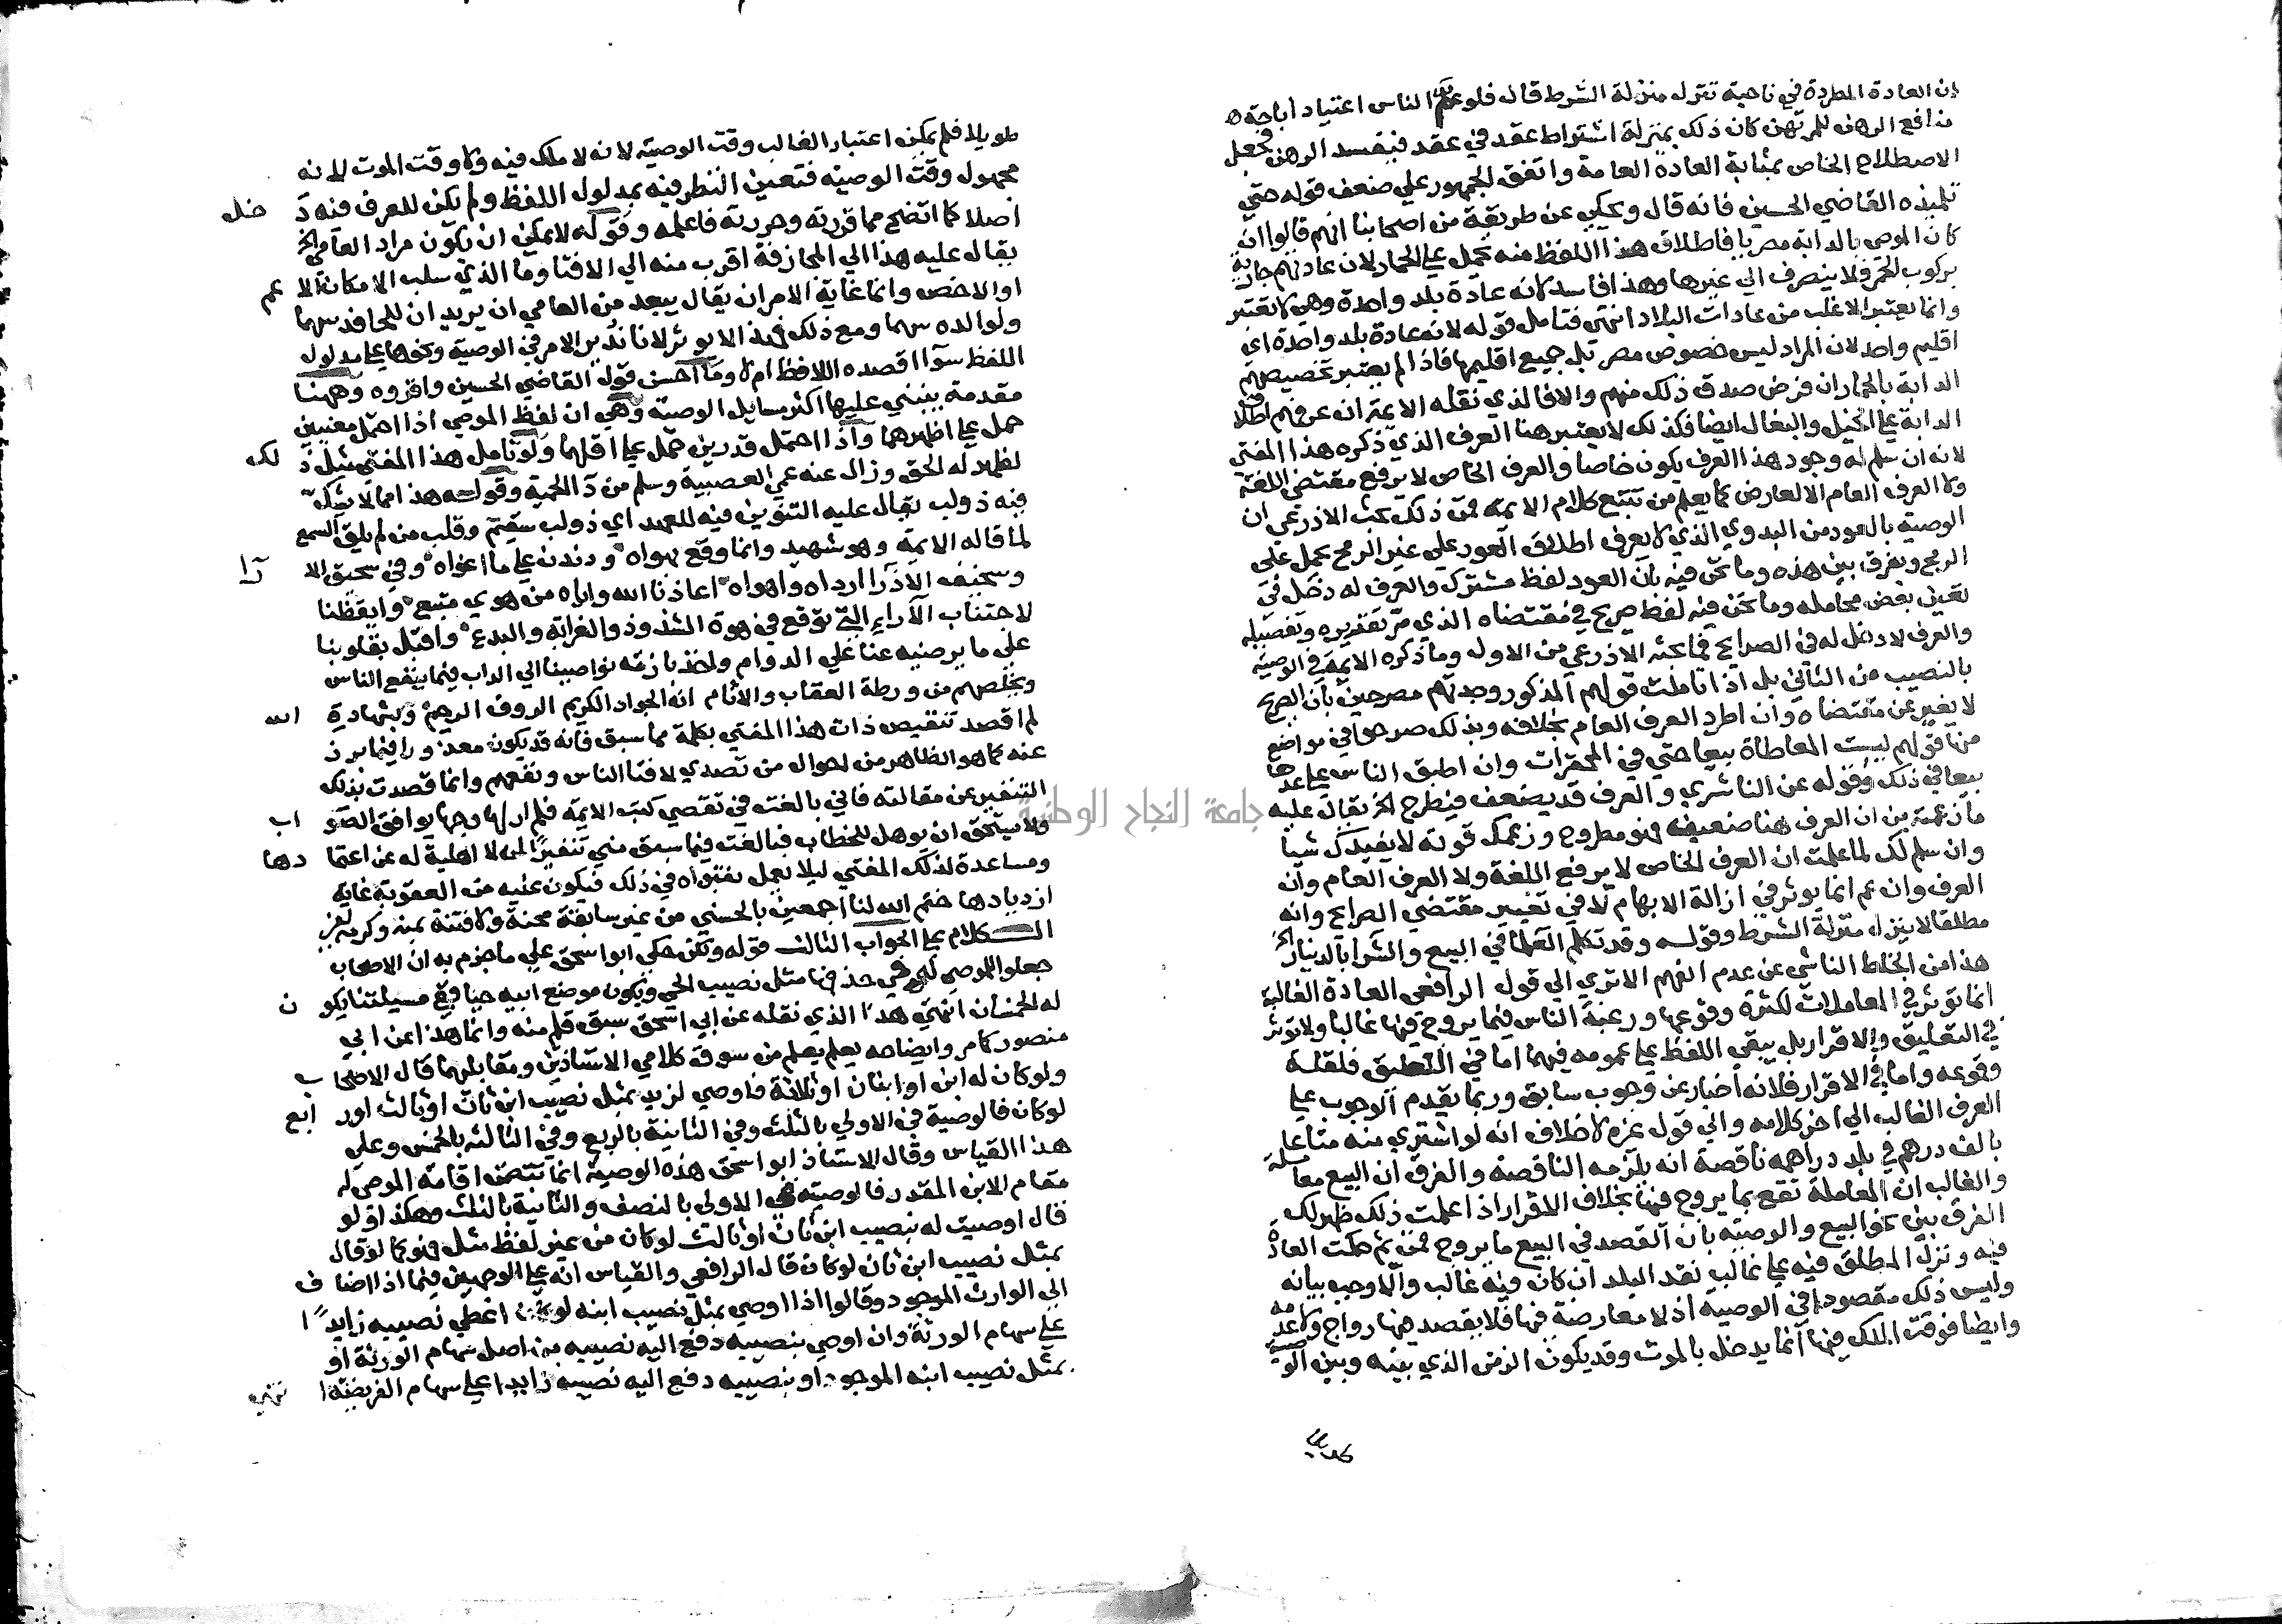 ان العادة المطردة في ناحية تنزل منزلة الشرط قال فلو عم الناس اعتياد اباحة
منافع الرهن للمرتهن كان ذلك بمنزلة اشتراط عقد في عقد فيفسد الرهن فجعل
الاصطلاح الخاص بمثابة العادة العامة واتفق الجمهور علي ضعف قوله حتي
تلميذه القاضي الحسين فانه قال وحكي عن طريقة من اصحابنا انهم قالوا ان
كان الموصي بالدابة مصريا فاطلاق هذا اللفظ منه يحمل علي الحمار لان عادتهم جارية
بركوب الحمر فلا ينصرف الي غيرها وهذا فاسد لانه عادة بلد واحدة وهي لا تعتبر
وانما يعتبر الاغلب من عادات البلاد انتهي فتامل قوله لانه عادة بلد واحدة اي
اقليم واحد لان المراد ليس خصوص مصر بل جميع اقليمها فاذا لم يعتبر تخصيصهم
الدابة بالحمار ان فرض صدق ذلك منهم والا فالذي نقله الايمة ان عرفهم اطلاق
الدابة علي الخيل والبغال ايضا فكذلك لا يعتبر هنا العرف الذي ذكره هذا المفتي
لانه ان سلم له وجود هذا العرف يكون خاصا والعرف الخاص لا يرفع مقتضي اللغة
ولا العرف العام الا لعارض كما يعلم من تتبع كلام الايمة فمن ذلك بحث الاذرعي ان
الوصية بالعود من البدوي الذي لا يعرف اطلاق العود علي غير الرمح يحمل علي
الرمح ويفرق بين هذه وما نحن فيه بان العود لفظ مشترك والعرف له دخل في
تعين بعض محامله وما نحن فيه لفظ صريح في مقتضاه الذي مر تقديره وتفصيله
والعرف لا دخل له في الصرايح فما بحثه الاذرعي من الاول وما ذكره الايمة في الوصية
بالنصيب من الثاني بل اذا تاملت قولهم المذكور وجدتهم مصرحين بان الصريح
لا يغير عن مقتضاه وان اطرد العرف العام بخلافه وبذلك صرحوا في مواضع
منها قولهم ليست المعاطاة بيعا حتي في المحقرات وان اطبق الناس علي عدها
بيعا في ذلك وقوله عن الناشري والعرف قد يضعف فيطرح الخ يقال عليه
ما زعمته من ان العرف هنا ضعيف فهو مطروح وزعمك قوته لا يفيدك شيا
وان سلم لك لما علمت ان العرف الخاص لا يرفع اللغة ولا العرف العام وان
العرف وان عم انما يوثر في ازالة الابهام لا في تغيير مقتضي الصرايح وانه
مطلقا لا ينزل منزلة الشرط وقوله وقد تكلم العلما في البيع والشرا بالدينار الخ
هذا من الخلط الناشي عن عدم الفهم الا تري الي قول الرافعي العادة الغالبة
انما توثر في المعاملات لكثرة وقوعها ورغبة الناس فيما يروج فيها غالبا ولا توثر
في التعليق والاقرار بل يبقي اللفظ علي عمومه فيهما اما في التعليق فلقلة
وقوعه واما في الاقرار فلانه اخبار عن وجوب سابق وربما يقدم الوجوب علي
العرف الغالب الي اخر كلامه والي قول غيره لا خلاف انه لو اشتري منه متاعا
بالف درهم في بلد دراهمه ناقصة انه يلزمه الناقصة والفرق ان البيع معاملة
والغالب ان المعاملة تقع بما يروج فيها بخلاف الاقرار اذا علمت ذلك ظهر لك
الفرق بين نحو البيع والوصية بان القصد في البيع ما يروج فمن ثم حكمت العادة
فيه ونزل المطلق فيه علي غالب نقد البلد ان كان فيه غالب والا وجب بيانه
وليس ذلك مقصودا في الوصية اذ لا معارضة فيها فلا يقصد فيها رواج ولا عدمه
وايضا فوقت الملك فيها انما يدخل بالموت وقد يكون الزمن الذي بينه وبين الوصية
طويلا فلم يمكن اعتبار الغالب وقت الوصية لانه لا ملك فيه ولا وقت الموت لانه
مجهول وقت الوصية فتعين النظر فيه بمدلول اللفظ ولم يكن للعرف فيه دخل
اصلا كما اتضح مما قررته وحررته فاعلمه وقوله لا يمكن ان يكون مراد العامي الخ
يقال عليه هذا الي المجازفة اقرب منه الي الافتا وما الذي سلب الامكان الاعم
او الاخص وانما غاية الامر ان يقال يبعد من العامي ان يريد ان للحافد سهما
ولوالده سهما ومع ذلك فهذا لا يوثر لانا ندير الامر في الوصية ونحوها علي مدلول
اللفظ سوآ اقصده اللافظ ام لا وما احسن قول القاضي الحسين واقروه وههنا
مقدمة ينبني عليها اكثر مسايل الوصية وهي ان لفظ الموصي اذا احتمل معنيين
حمل علي اظهرهما واذا احتمل قدرين حمل علي اقلهما ولو تامل هذا المفتي مثل ذلك
لظهر له الحق وزال عنه عمي العصبية وسلم من دآ الحمية وقوله هذا مما لا يشك
فيه ذو لب يقال عليه التنوين فيه للعهد اي ذو لب سقيم وقلب من لم يلق السمع
لما قاله الايمة وهو شهيد وانما وقع بهواه ودندن علي ما اغواه وفي سحيق الارا
وسخيف الادرا ارداه واهواه اعاذنا الله واياه من هوي متبع وايقظنا
لاجتناب الآراء التي توقع في هوة الشذوذ والغرابة والبدع واقبل بقلوبنا
علي ما يرضيه عنا علي الدوام واخذ بازمة نواصينا الي الداب فيما ينفع الناس
ويخلصهم من ورطة العقاب والآثام انه الجواد الكريم الروف الرحيم وبشهادة الله
لم اقصد تنقيص ذات هذا المفتي بكلمة مما سبق فانه قد يكون معذورا فيما برز
عنه كما هو الظاهر من احوال من تصدي لافتا الناس ونفعهم وانما قصدت بذلك
التنفير عن مقالته فاني بالغت في تقصي كتب الايمة فلم ار لها وجها يوافق الصواب
ولا يستحق ان يوهل للخطاب فبالغت فيما سبق مني تنفيرا لمن لا اهلية له عن اعتمادها
ومساعدة لذلك المفتي ليلا يعمل بفتواه في ذلك فيكون عليه من العقوبة غاية
ازديادها ختم الله لنا اجمعين بالحسني من غير سابقة محنة ولا فتنة بمنه وكرمه
الكلام علي الجواب الثالث قوله ولكن حكي ابو اسحق علي ما جزم به ان الاصحاب
جعلوا الموصي له في حذفها مثل نصيب الحي ويكون موضع ابيه حيا ففي مسيلتنا يكون
له الخمسان انتهي هذا الذي نقله عن ابي اسحق سبق قلم منه وانما هذا عن ابي
منصور كما مر وايضاحه يعلم من سوق كلامي الاستاذين ومقابلهما قال الاصحاب
ولو كان له ابن او ابنان او ثلاثة فاوصي لزيد بمثل نصيب ابن ثان او ثالث او رابع
لو كان فالوصية في الاولي بالثلث وفي الثانية بالربع وفي الثالثة بالخمس وعلي
هذا القياس وقال الاستاذ ابو اسحق هذه الوصية انما تتضمن اقامة الموصي له
مقام الابن المقدر فالوصية في الاولي بالنصف والثانية بالثلث وهكذا ولو
قال اوصيت له بنصيب ابن ثان او ثالث لو كان من غير لفظ مثل فهو كما لو قال
بمثل نصيب ابن ثان لو كان قال الرافعي والقياس انه علي الوجهين فيما اذا اضاف
الي الوارث الموجود وقالوا اذا اوصي بمثل نصيب ابنه لو كان اعطي نصيبه زايدا
علي سهام الورثة وان اوصي بنصيبه دفع اليه نصيبه من اصل سهام الورثة او
بمثل نصيب ابنه الموجود او بنصيبه دفع اليه نصيبه زايدا علي سهام الفريضة انتهي
جامعة النجاح الوطنية